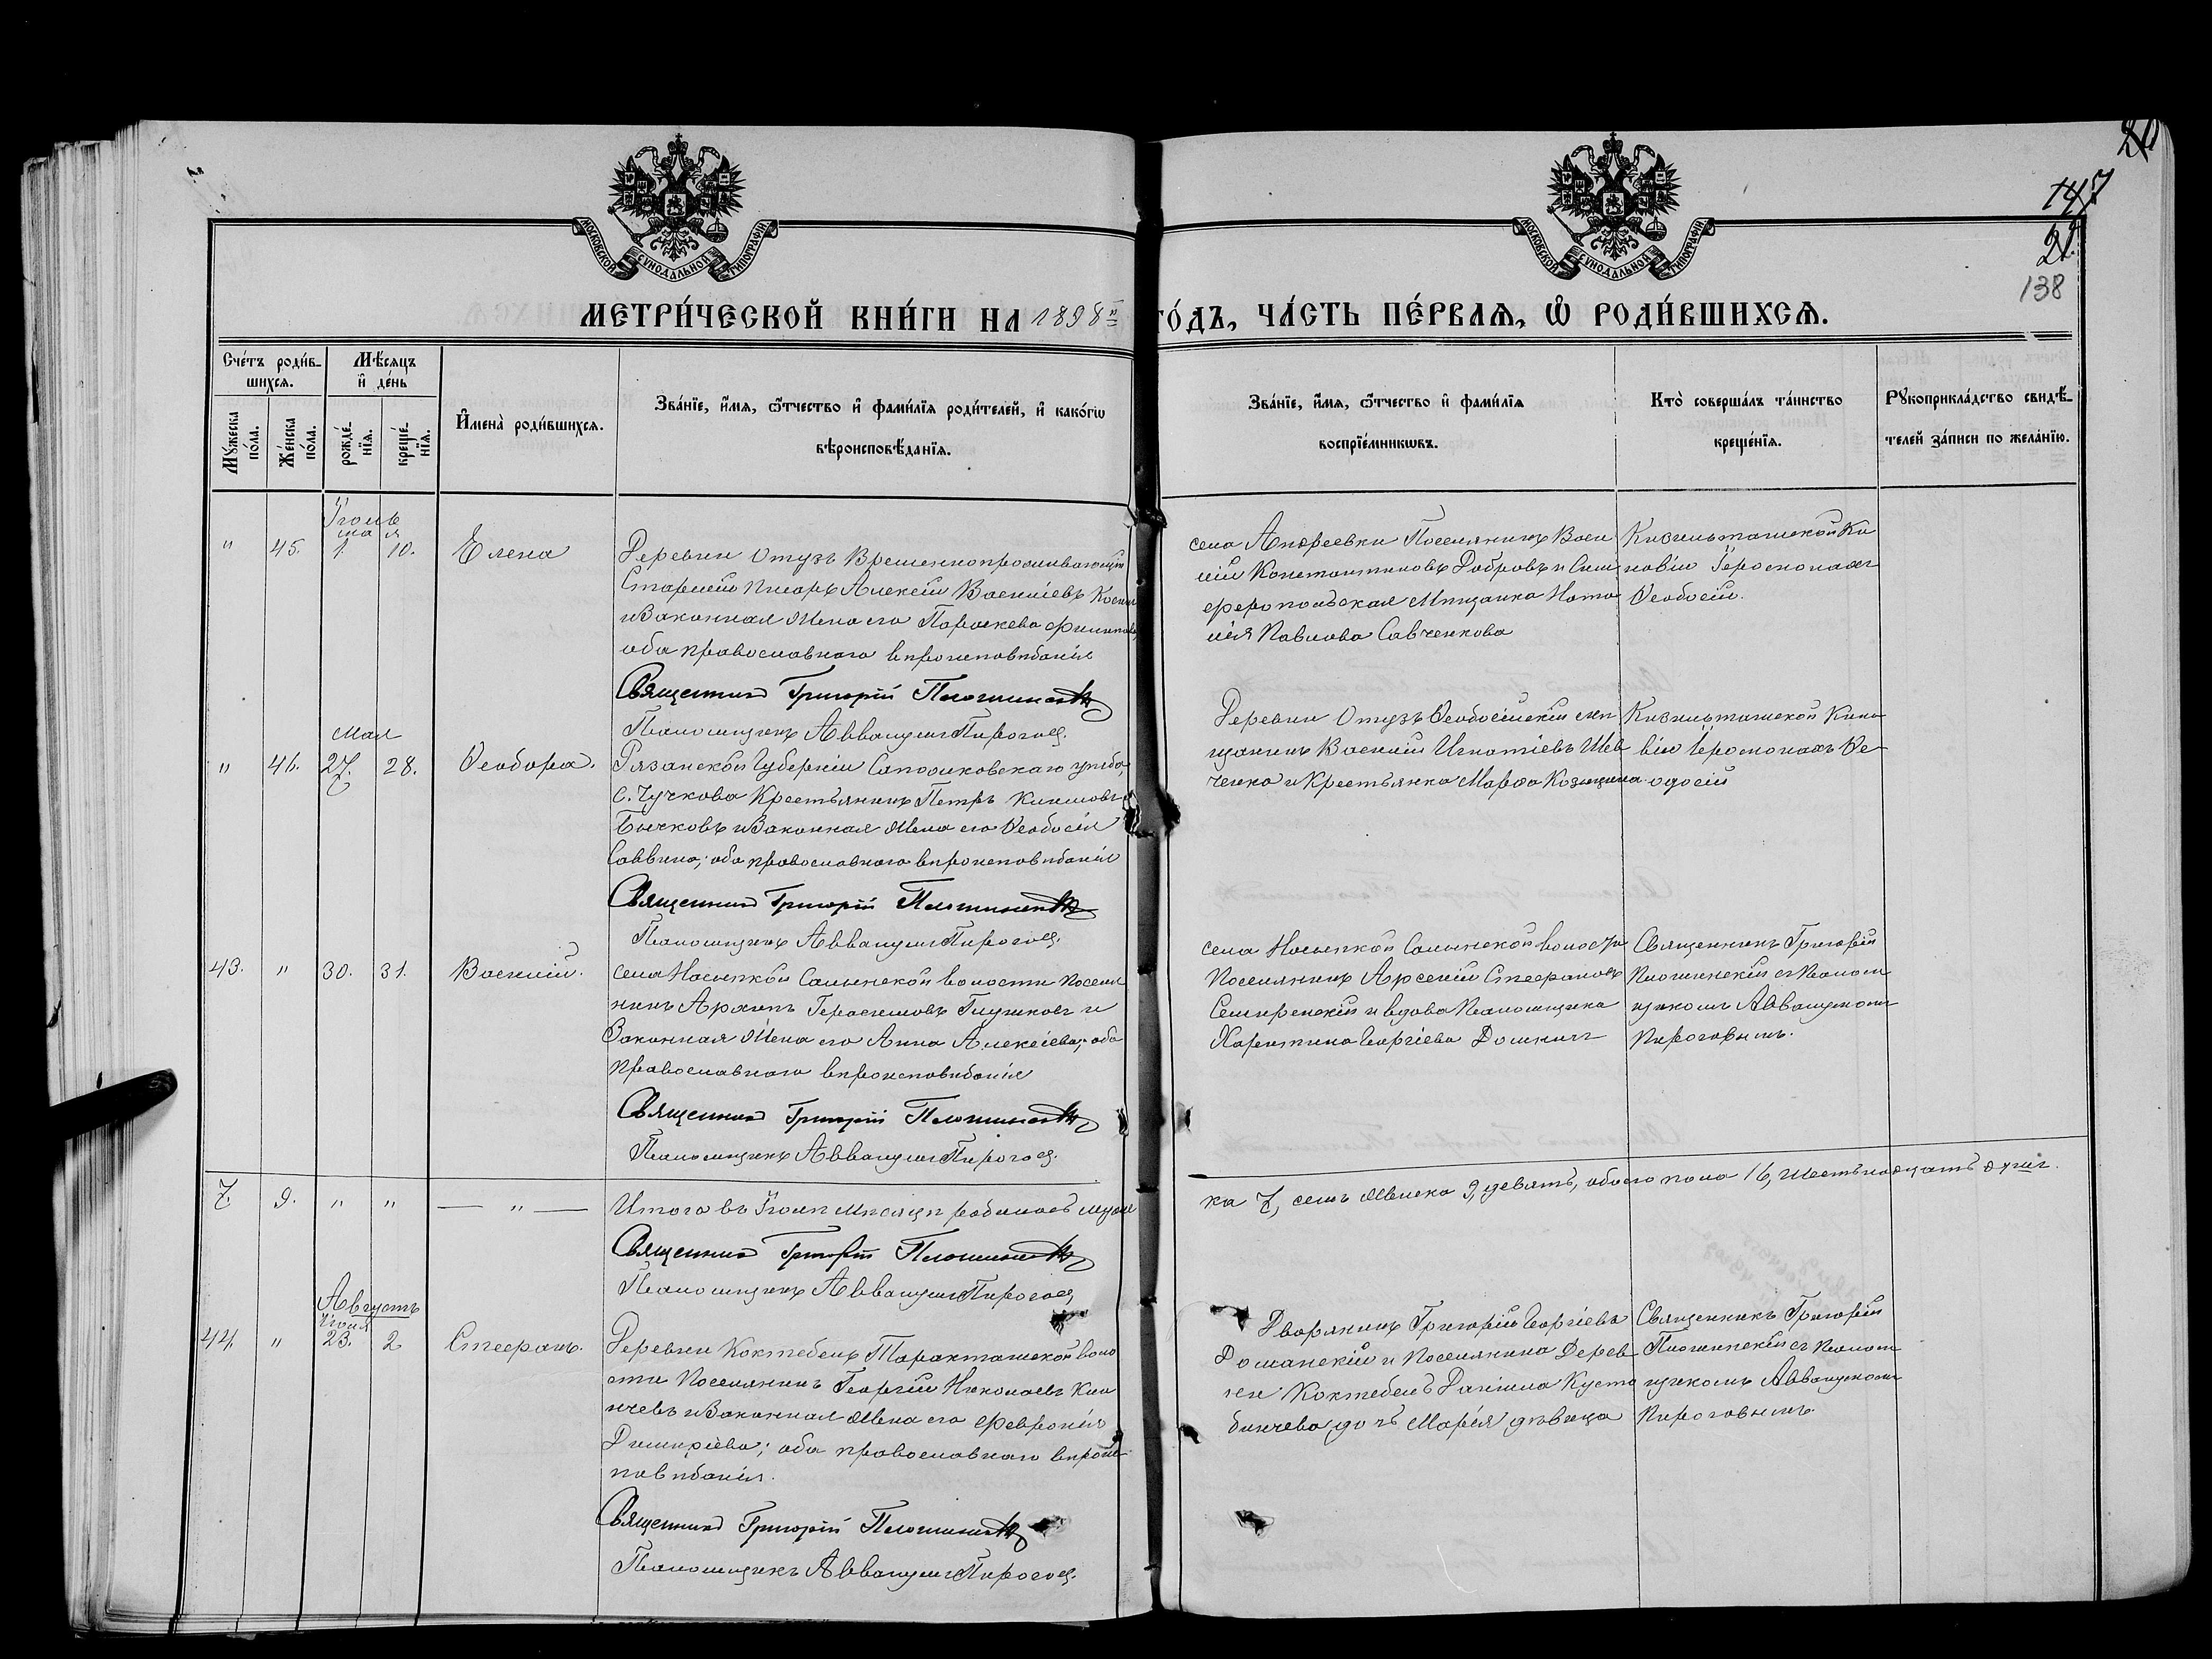 МОСКОВСКОЙ СУНОДАЛЬНОЙ ТИПОГРАФІИ
МОСКОВСКОЙ СУНОДАЛЬНОЙ ТИПОГРАФІИ
147
138
МЕТРИ́ЧЕСКОЙ КНИ́ГИ НА 1898й
ГО́ДЪ, ЧА́СТЬ ПЕ́РВАѦ, Ѡ РОДИ́ВШИХСѦ.
Сче́тъ роди́в-
шихсѧ.
Мѣ́сѧцъ
и҆ де́нь
Мꙋ́жеска
по́ла.
Же́нска
по́ла.
рожде́-
нїѧ.
креще́-
нїѧ.
И҆мена̀ роди́вшихсѧ.
Зва́нїе, и҆́мѧ, ѻ҆́тчество и҆ фами́лїѧ роди́телей, и҆ како́гѡ
вѣроисповѣ́данїѧ.
Зва́нїе, и҆́мѧ, ѻ҆́тчество и҆ фами́лїѧ
воспрїе́мникѡвъ.
Кто̀ соверша́лъ та́инство
креще́нїѧ.
Рꙋкоприкла́дство свидѣ́-
телей за́писи по жела́нїю.
"
45.
1.
10.
Елена
Деревни Отузъ Временнопроживающій
Старшій Писарь Алексѣй Василіевъ
и Законная Жена его Параскева Филиппова
оба православнаго вѣроисповѣданія
Священникъ Григорій
Псаломщикъ Аввакумъ Пироговъ.
села Андреевки Поселянинъ Васи
лій Константиновъ Добровъ и Сим
феропольская Мѣщанка Ната
лія Павлова Савченкова
Кизильташской Ки
новіи Іеромонахъ
Ѳеодосій.
Мая
"
46.
27.
28.
Ѳеодора.
Рязанской Губерніи Сапожковскаго уѣзда,
с. Чучкова Крестьянинъ Петръ Климовъ
Бычковъ и Законная Жена его Ѳеодосія
Саввина; оба православнаго вѣроисповѣданія
Священникъ Григорій
Псаломщикъ Аввакумъ Пироговъ.
Деревни Отузъ Ѳеодосійскій мѣ
щанинъ Василій Игнатіевъ Шев
ченко и Крестьянка Марѳа Козицина
Кизильташской Кино
віи Іеромонахъ Ѳе-
одосій
43.
"
30.
31.
Василій.
села Насыпкой Салынской волости Поселя
нинъ Архипъ Герасимовъ Глушковъ и
Законная Жена его Анна Алексіева; оба
Православнаго вѣроисповѣданія
Священникъ Григорій
Псаломщикъ Аввакумъ Пироговъ.
села Насыпкой Салынской волости
Поселянинъ Арсеній Стефановъ
и вдова Псаломщика
Харитина Георгіева
Священникъ Григорій
съ Псалом
щикомъ Аввакумомъ
Пироговымъ.
7.
9.
"
"
— " —
Итого въ Іюлѣ мѣсяцѣ родилось муже
ка 7, семь женска 9, девять, обоего пола 16, шестьнадцать душъ.
Священникъ Григорій
Псаломщикъ Аввакумъ Пироговъ
Августъ
Іюля
44.
"
23.
2
Стефанъ.
Деревни Коктебель Таракташской воло
сти Поселянинъ Георгій Николаевъ
и Законная Жена его Февронія
Димиріева; оба православнаго вѣроис
повѣданія.
Священникъ Григорій
Псаломщикъ Аввакумъ Пироговъ.
Дворянинъ Григорій Георгіевъ
Доманскій и Поселянина Дерев
ни Коктебель Даніила Куста
бинчева дочь Марія дѣвица
Священникъ Григорій
съ Псалом
щикомъ Аввакумомъ
Пироговымъ.